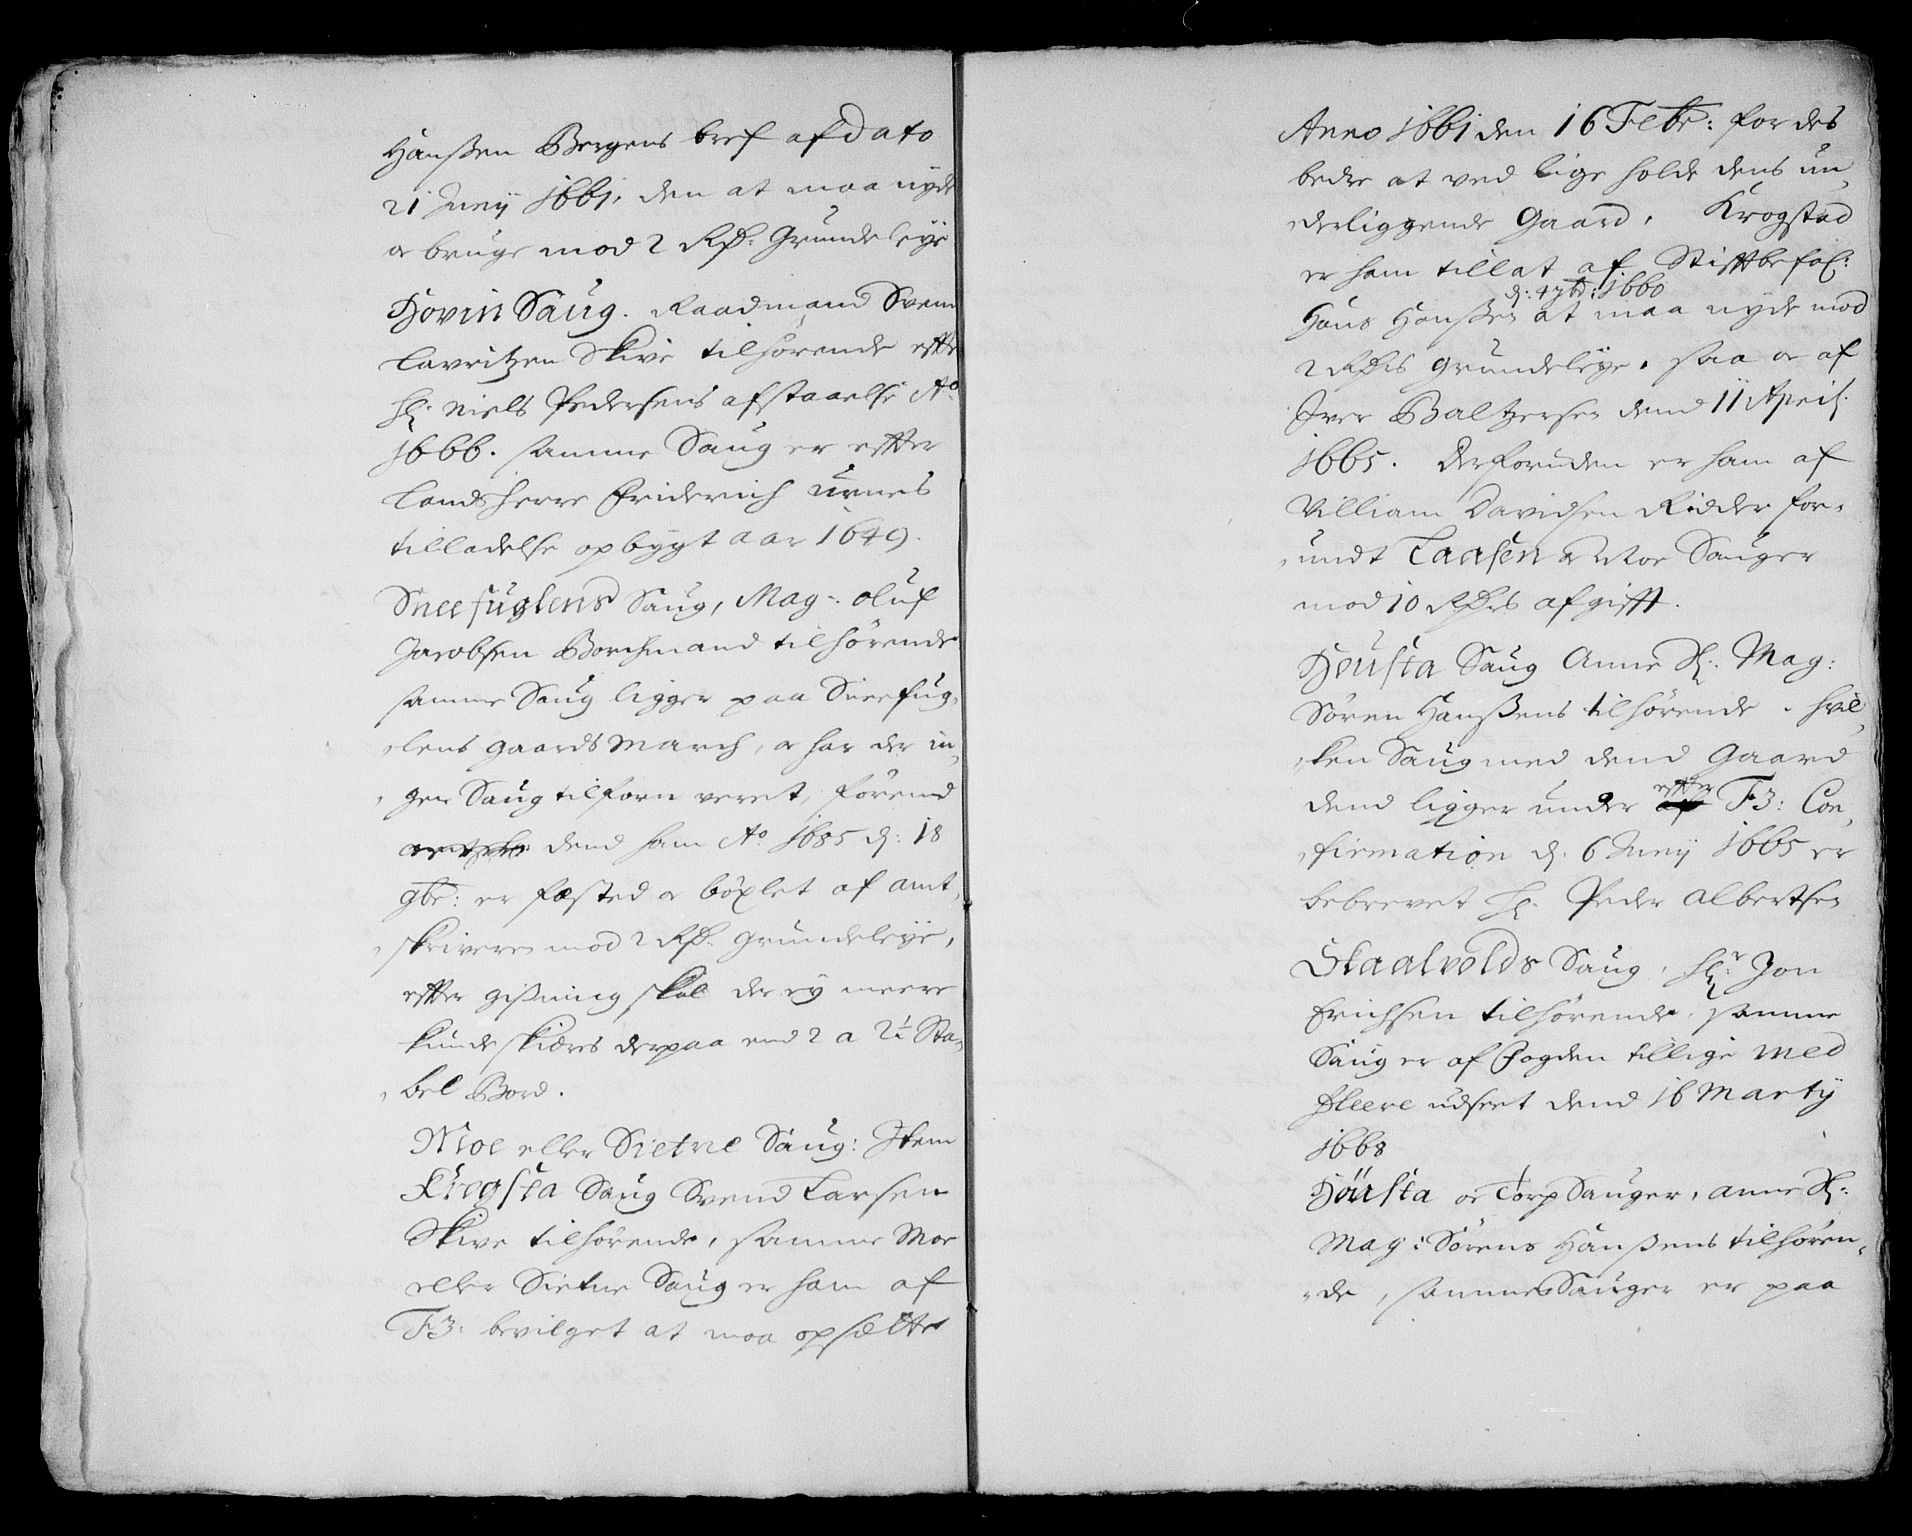 Hanßen Bergens bref af dato
21 Junij 1661, den at maa nyde
oc bruge mod 2 Rdr: Grundeleye
Hovin Saug. Raadmand Svend
Lavritzen Skive tilhørende effter
Hr: Niels Pedersens afstaaelse Ao:
1666. samme Saug er effter
Landsherre Friderich Urnes
tilladelse opbygt aar 1649.
Sneefuglens Saug, Mag:. oluf
Jacobsen Borchmand tilhørende
samme Saug ligger paa Sneefug„
„lens gaards March, oc har der in„
„gen Saug tilforn veret, førend
dend ham Ao 1685 d: 18
9br: er fæsted oc böxlet af amt„
„skriveren mod 2 Rdr. grundeleye,
effter gißning skal der ey meere
kunde skiæres derpaa end 2 a 2½ Sta„
„bel Bord.
Moe eller Sietne Saug: Item
Krogsta Saug Svend Larsen
Skive tilhørende, samme Moe
eller Sietne Saug er ham af
F3: bevilget at maa opsætte
Anno 1661 den 16 Febr: for des
bedre at ved lige holde dens un„
derliggende Gaard, Krogstad
er ham tillat af Stiftbefal:
d: 4 7br: 1660
Hans Hanßen at maa nyde mod
2 Rdrs grundeleye. saa oc af
Iver Baltzersen dend 11 April:
1665. Derforuden er ham af
Villiam Davidsen Ridder for„
„undt Laasen oc Moe Sauger
mod 10 Rdrs afgifft.
Housta Saug Anne Sl:. Mag:
Søren Hanßens tilhørende. hvil„
„ken Saug med dend Gaard
dend ligger under effter F3: Con„
„firmation d. 6 Junij 1665 er
bebrevet Hr. Peder Albertsen
Skaalvolds Saug, Hr: Jon
Erichsen tilhørende, samme
Saug er af Fogden tillige med
fleere udseet dend 16 Martij
1668
Hóusta oc Torp Sauger, anne Sl:
Mag: Sørens Hanßens tilhøren„
„de, samme Sauger er paa